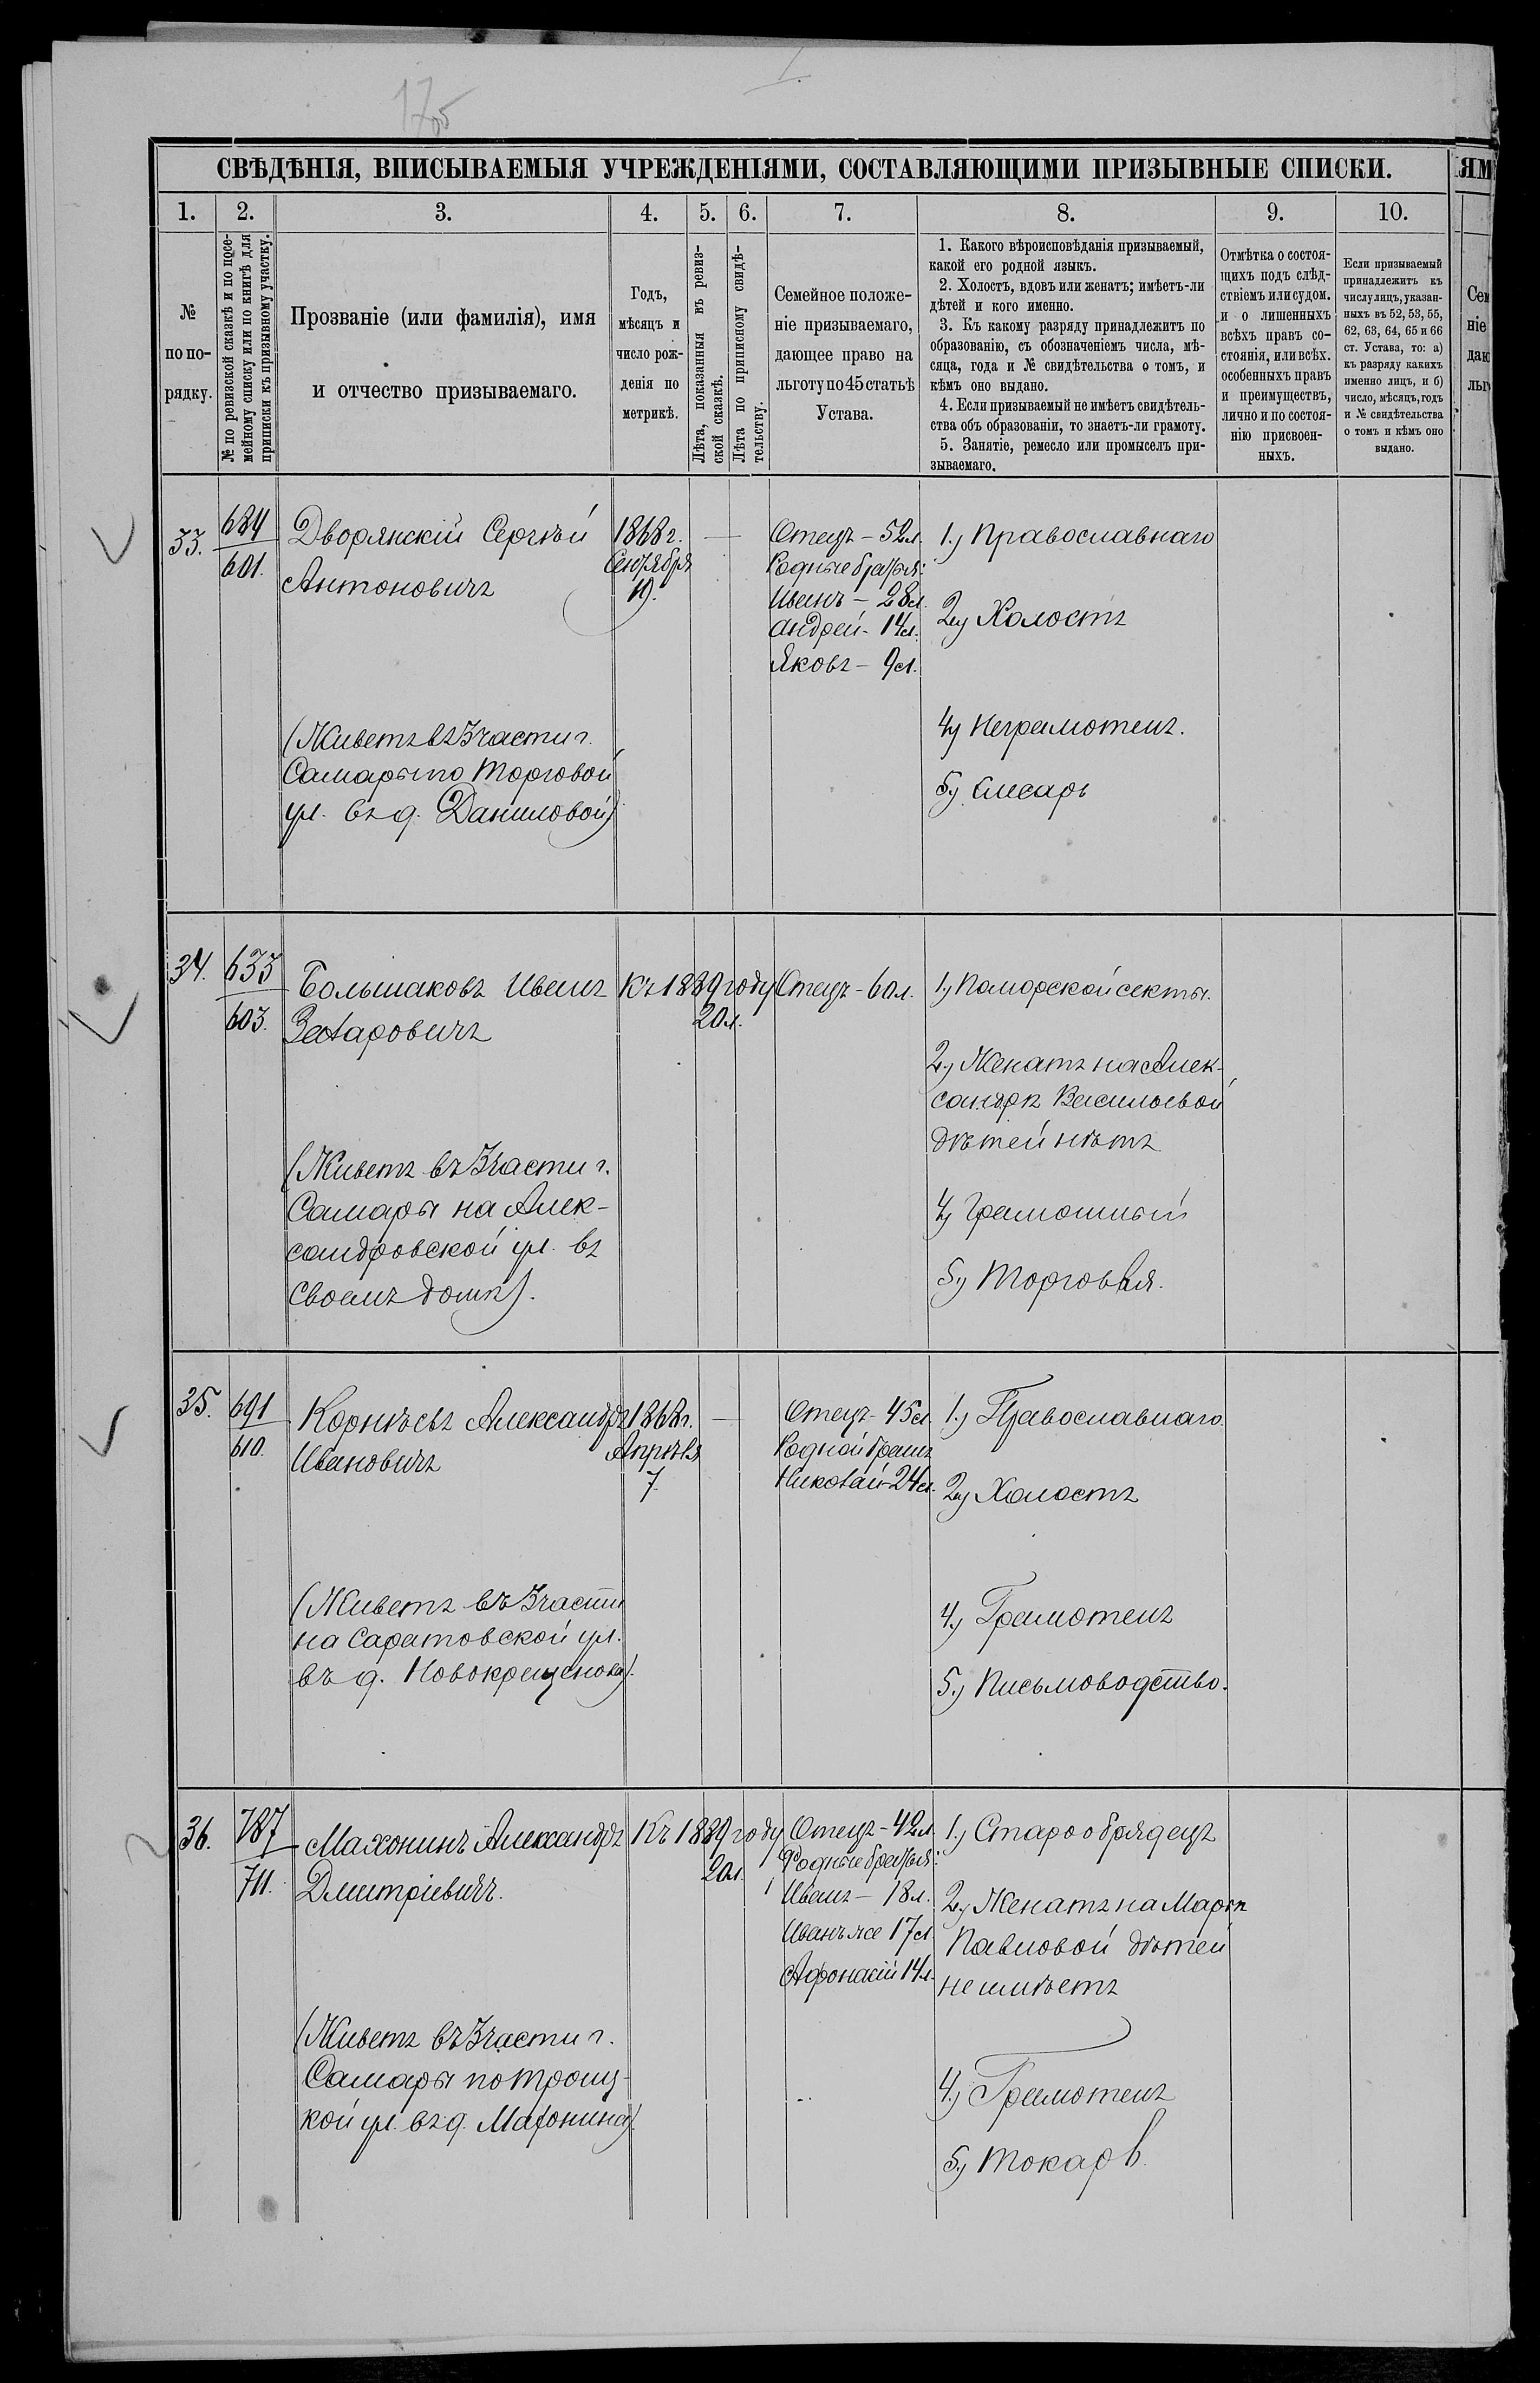 175
СВѢДѢНІЯ, ВПИСЫВАЕМЫЯ УЧРЕЖДЕНІЯМИ, СОСТАВЛЯЮЩИМИ ПРИЗЫВНЫЕ СПИСКИ.
ЯМ
1. 2. 3. 4. 5. 6. 7. 8. 9. 10.
№
по по-
рядку.
№ по ревизской сказкѣ и по посе-
мейному списку или по книгѣ для
приписки къ призывному участку.
Прозваніе (или фамилія), имя
и отчество призываемаго.
Годъ,
мѣсяцъ и
число рож-
денія по
метрикѣ.
Лѣта, показанныя въ ревиз-
ской сказкѣ.
Лѣта по приписному свидѣ-
тельству.
Семейное положе-
ніе призываемаго,
дающее право на
льготу по 45 статьѣ
Устава.
1. Какого вѣроисповѣданія призываемый,
какой его родной языкъ.
2. Холостъ, вдовъ или женатъ; имѣетъ-ли
дѣтей и кого именно.
3. Къ какому разряду принадлежитъ по
образованію, съ обозначеніемъ числа, мѣ-
сяца, года и № свидѣтельства о томъ, и
кѣмъ оно выдано.
4. Если призываемый не имѣетъ свидѣтель-
ства объ образованіи, то знаетъ-ли грамоту.
5. Занятіе, ремесло или промыселъ при-
зываемаго.
Отмѣтка о состоя-
щихъ подъ слѣд-
ствіемъ или судом.
и о лишенныхъ
всѣхъ правъ со-
стоянія, или всѣх.
особенныхъ правъ
и преимуществъ,
лично и по состоя-
нію присвоен-
ныхъ.
Если призываемый
принадлежитъ къ
числу лицъ, указан-
ныхъ въ 52, 53, 55,
62, 63, 64, 65 и 66
ст. Устава, то: а)
къ разряду какихъ
именно лицъ, и б)
число, мѣсяцъ, годъ
и № свидѣтельства
о томъ и кѣмъ оно
выдано.
Сем
ніе
даю
льг
33.
684
601.
Дворянскій Сергѣй
Антоновичъ
(Живетъ въ 3 части г.
Самары по Торговой
ул. въ д. Даниловой)
1868 г.
Сентября
19.
—
Отецъ – 52 л.
Родные братья:
Иванъ – 28 л.
Андрей – 14 л.
Яковъ – 9 л.
1.) Православнаго
2.) Холостъ
4.) Неграмотенъ.
5.) Слесарь
34.
633
603.
Большаковъ Иванъ
Захаровичъ
(Живетъ въ 3 части г.
Самары на Алек-
сандровской ул. въ
своемъ домѣ).
Къ 1889 году
20 л.
Отецъ – 60 л.
1.) Поморской секты.
2.) Женатъ на Алек-
сандрѣ Васильевой
дѣтей нѣтъ
4.) Грамотный
5.) Торговля.
35.
691
610.
Корнѣевъ Александръ
Ивановичъ
(Живетъ въ 3 части
на Саратовской ул.
въ д. Новокрещенова).
1868 г.
Апрѣля
7.
—
Отецъ – 45 л.
Родной братъ
Николай – 24 л.
1.) Православнаго.
2.) Холостъ
4.) Грамотенъ
5.) Письмоводство.
36.
787
711.
Махонинъ Александръ
Дмитріевичъ.
(Живетъ въ 3 части г.
Самары по Троиц-
кой ул. въ д. Махонина).
Къ 1889 году
20 л.
Отецъ – 42 л.
Родные братья:
Иванъ – 18 л.
Иванъ же 17 л.
Афонасій 14 л.
1.) Старообрядецъ
2.) Женатъ на Марьѣ
Павловой дѣтей
не имѣетъ
4.) Грамотенъ
5.) Токарь.